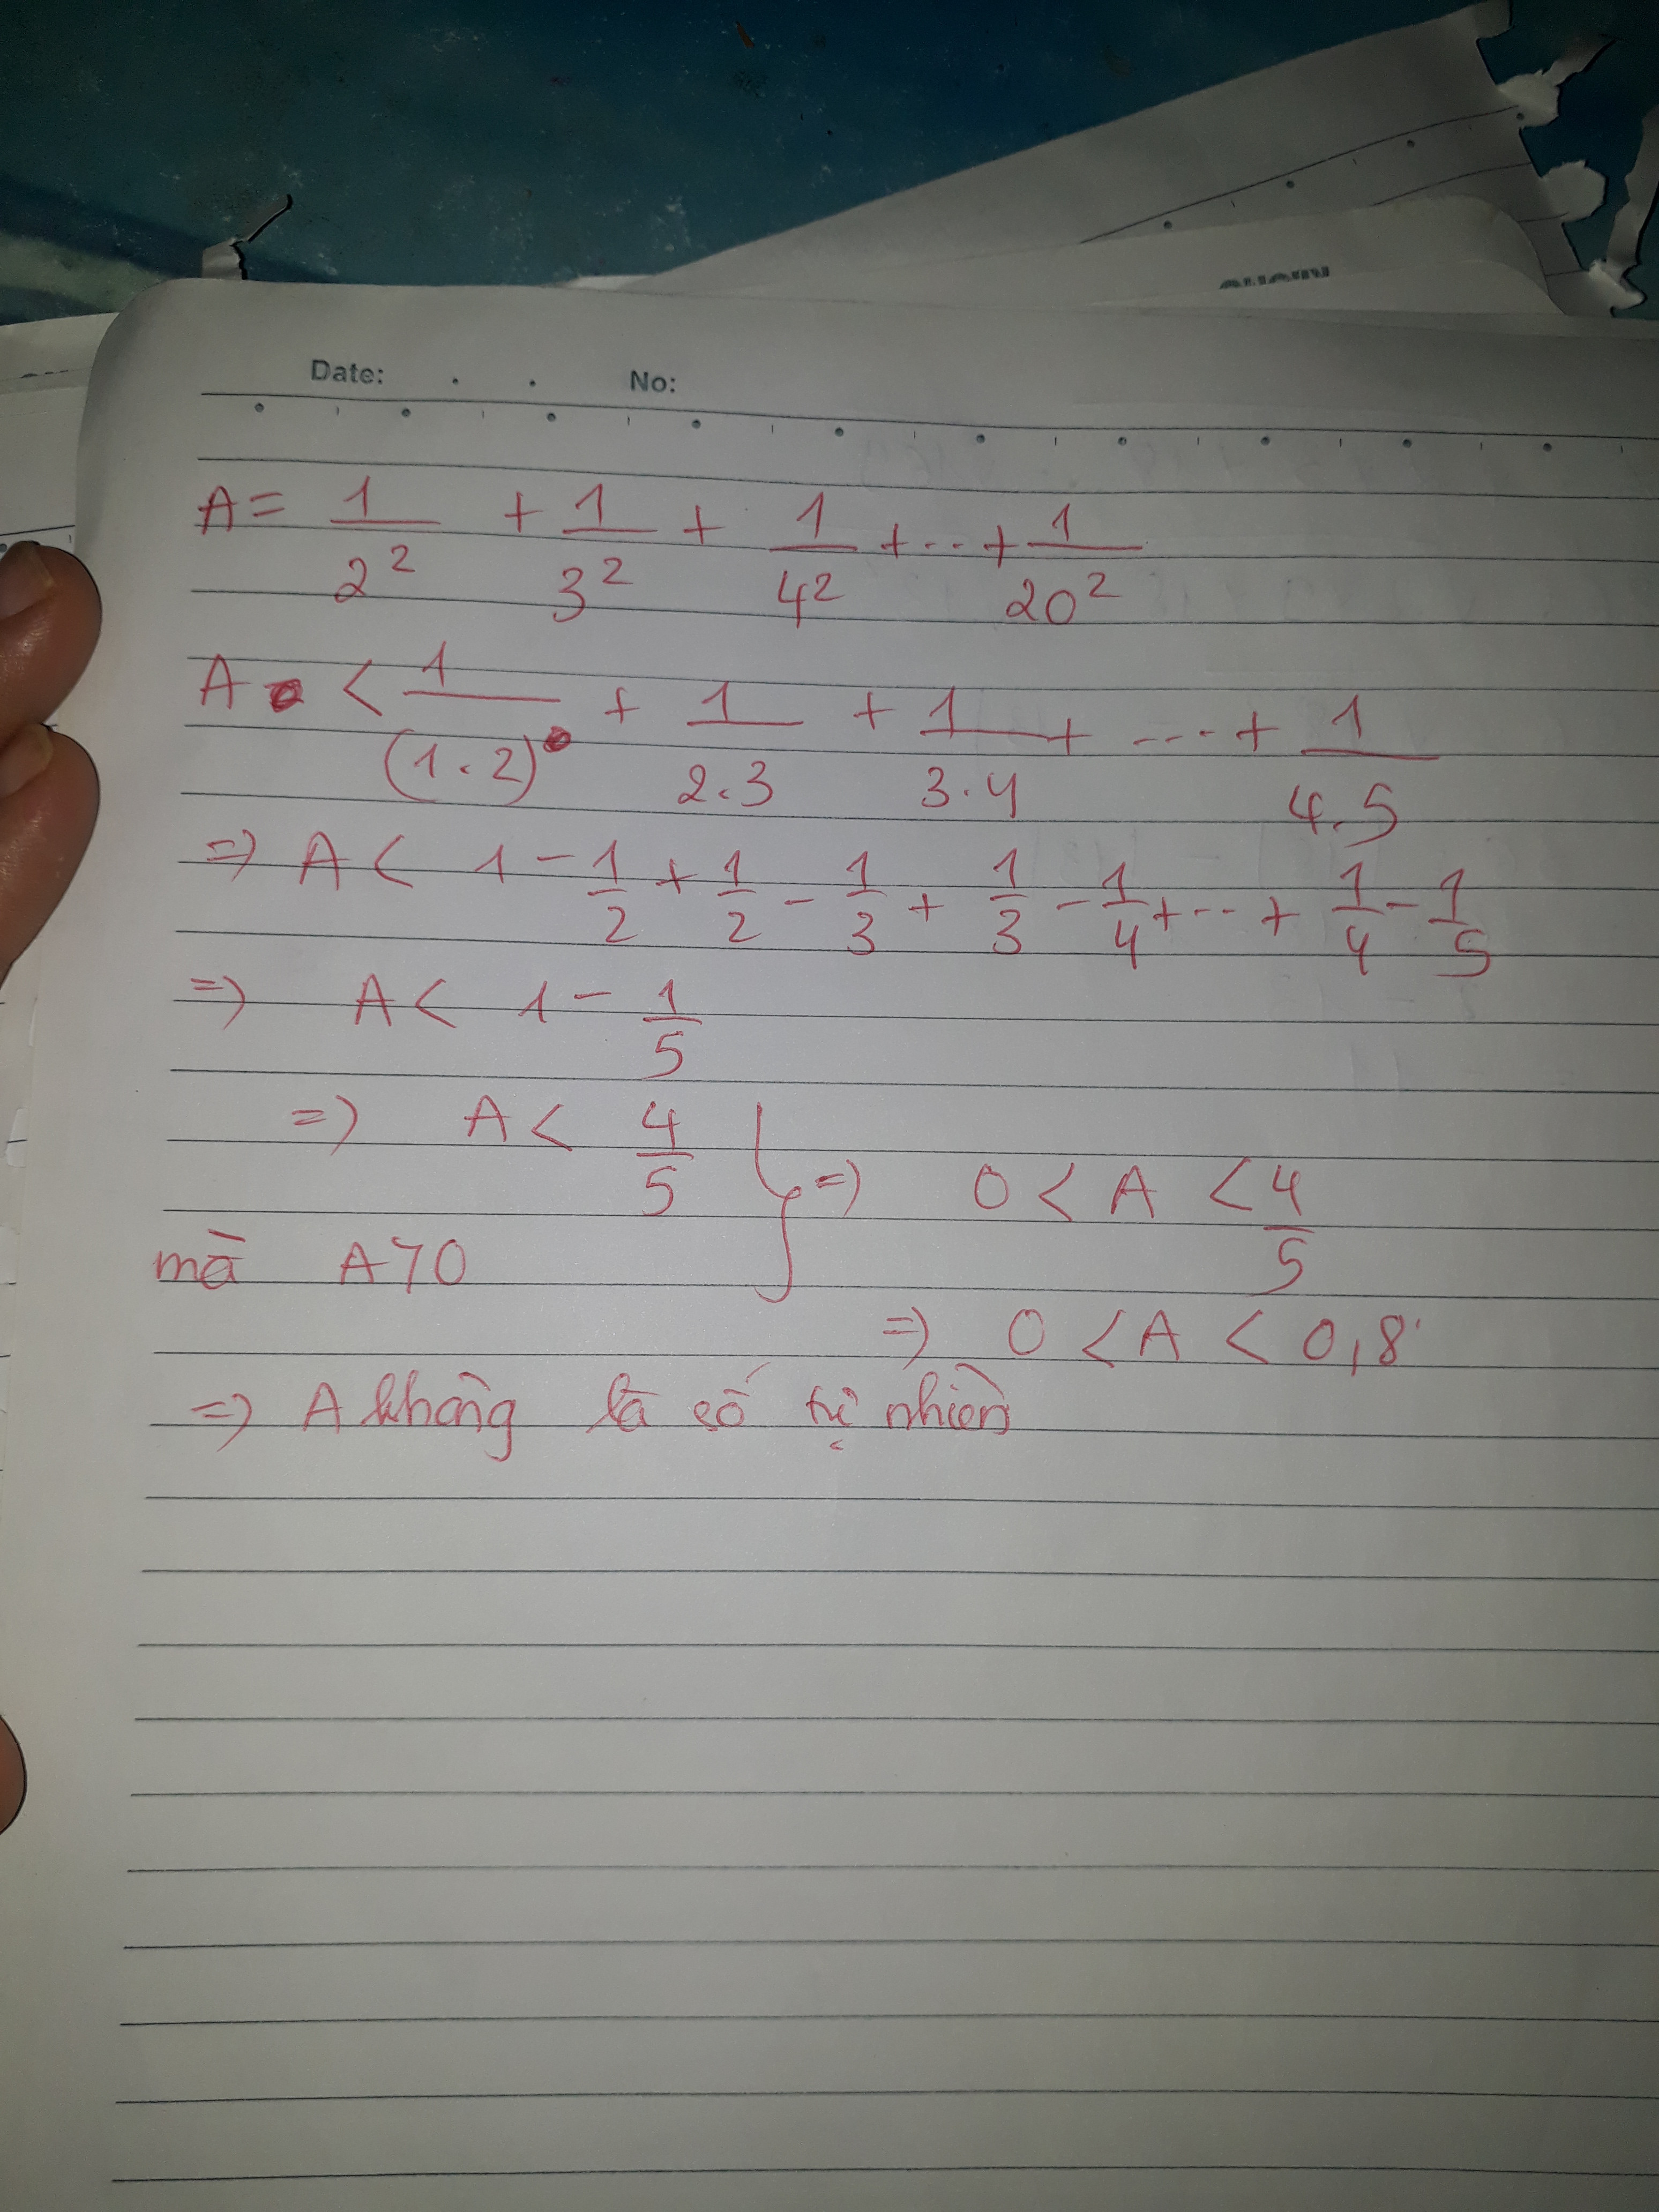 Date: . . No:
A = 1/2² + 1/3² + 1/4² + ... + 1/20²
A < 1/(1.2) + 1/2.3 + 1/3.4 + .... + 1/4.5
=> A < 1 - 1/2 + 1/2 - 1/3 + 1/3 - 1/4 + ... + 1/4 - 1/5
=> A < 1 - 1/5
=> A < 4/5
=> 0 < A < 4/5
mà A > 0
=> 0 < A < 0,8
=> A không là số tự nhiên